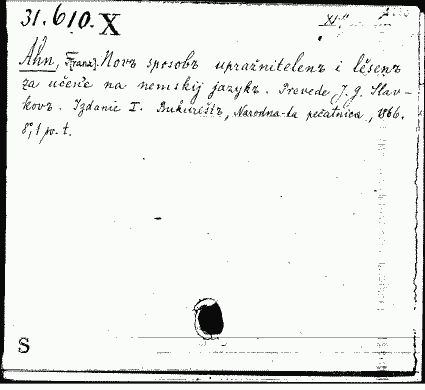 31.610.X
XI"
Ahn, [Franz]. Novъ sposobъ upražnitelenъ i lěsenъ
za učen'e na nemskij jazykъ. Prevede J. G. Slav-
kovъ. Izdanie I. Bukureštъ, Narodna-ta pečatnica, 1866.
8°, 1 po. t.
S